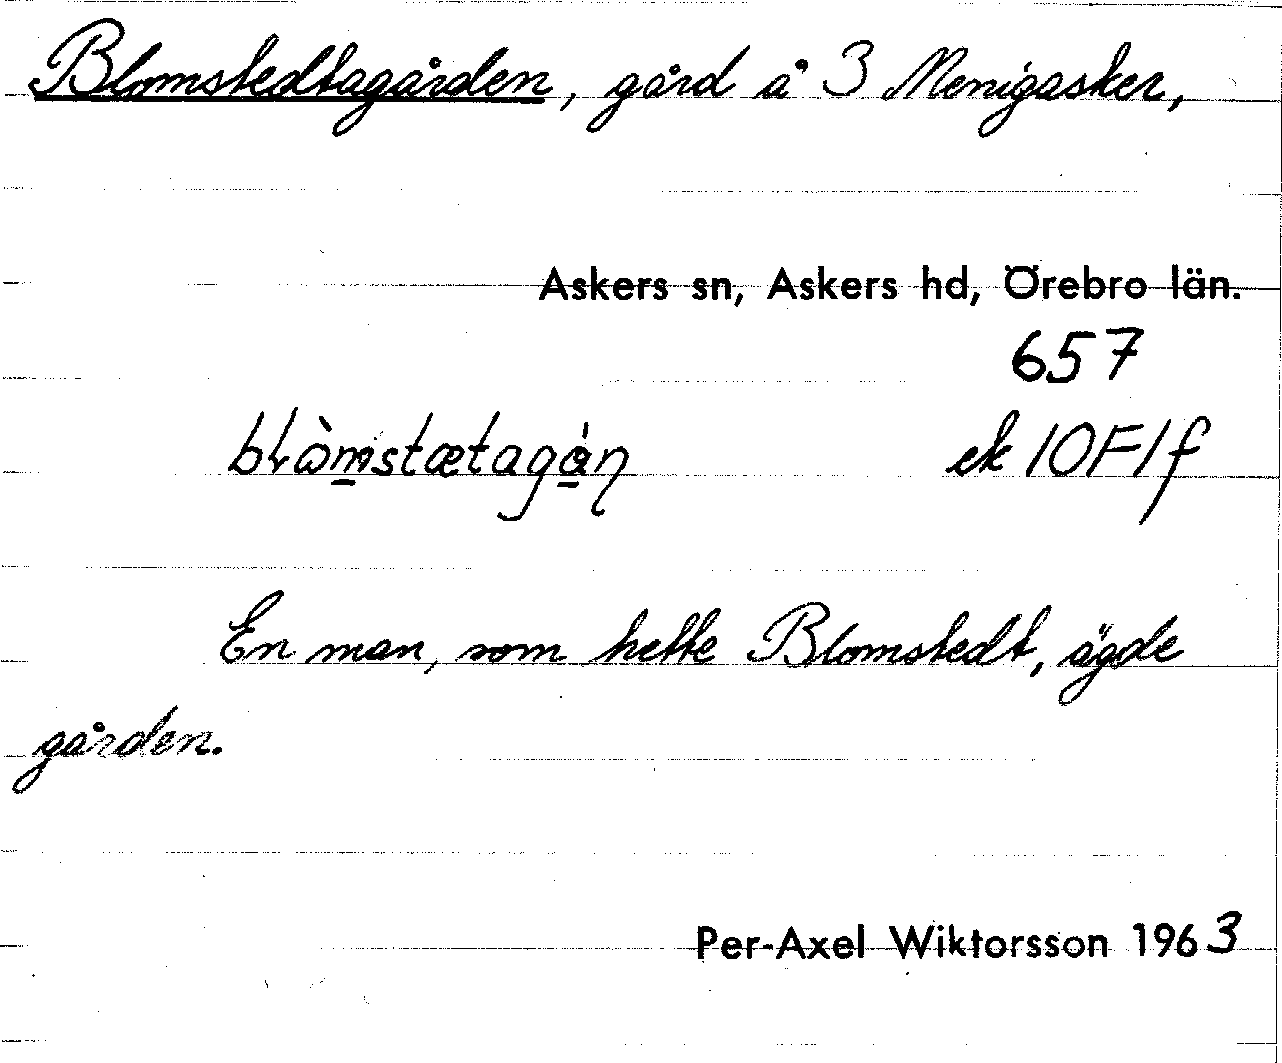 Blomstedtagården, gård å 3 Menigasker,
Askers sn, Askers hd, Örebro län.
657
ek 10F1f
En man, som hette Blomstedt, ägde
gården.
Per-Axel Wiktorsson 1963